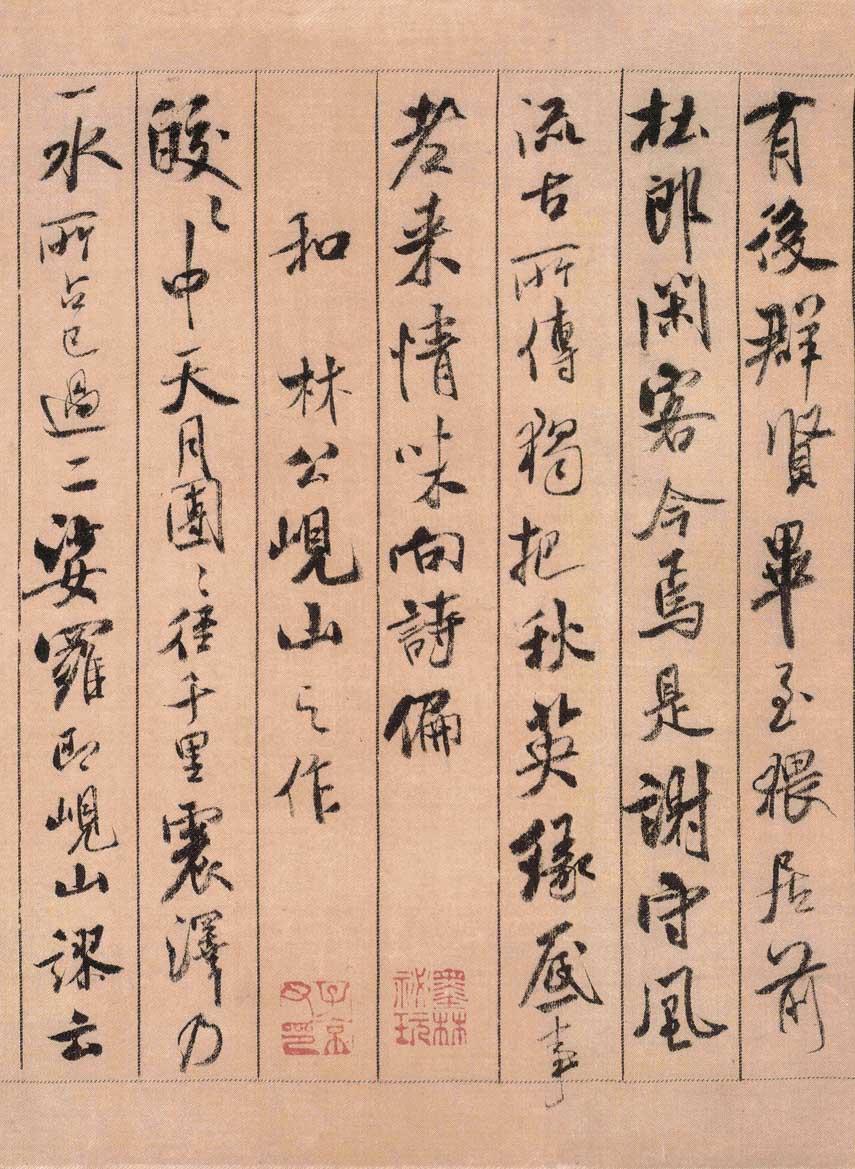 有後群賢畢至猥居前
杜郎閑客今焉是謝守風
流古所傳獨把秋英緣底事
老来情味向詩偏
墨林祕玩
和林公峴山之作
子京父印
皎〻中天月團〻徑千里震澤乃
一水所占已過二娑羅即峴山謬云